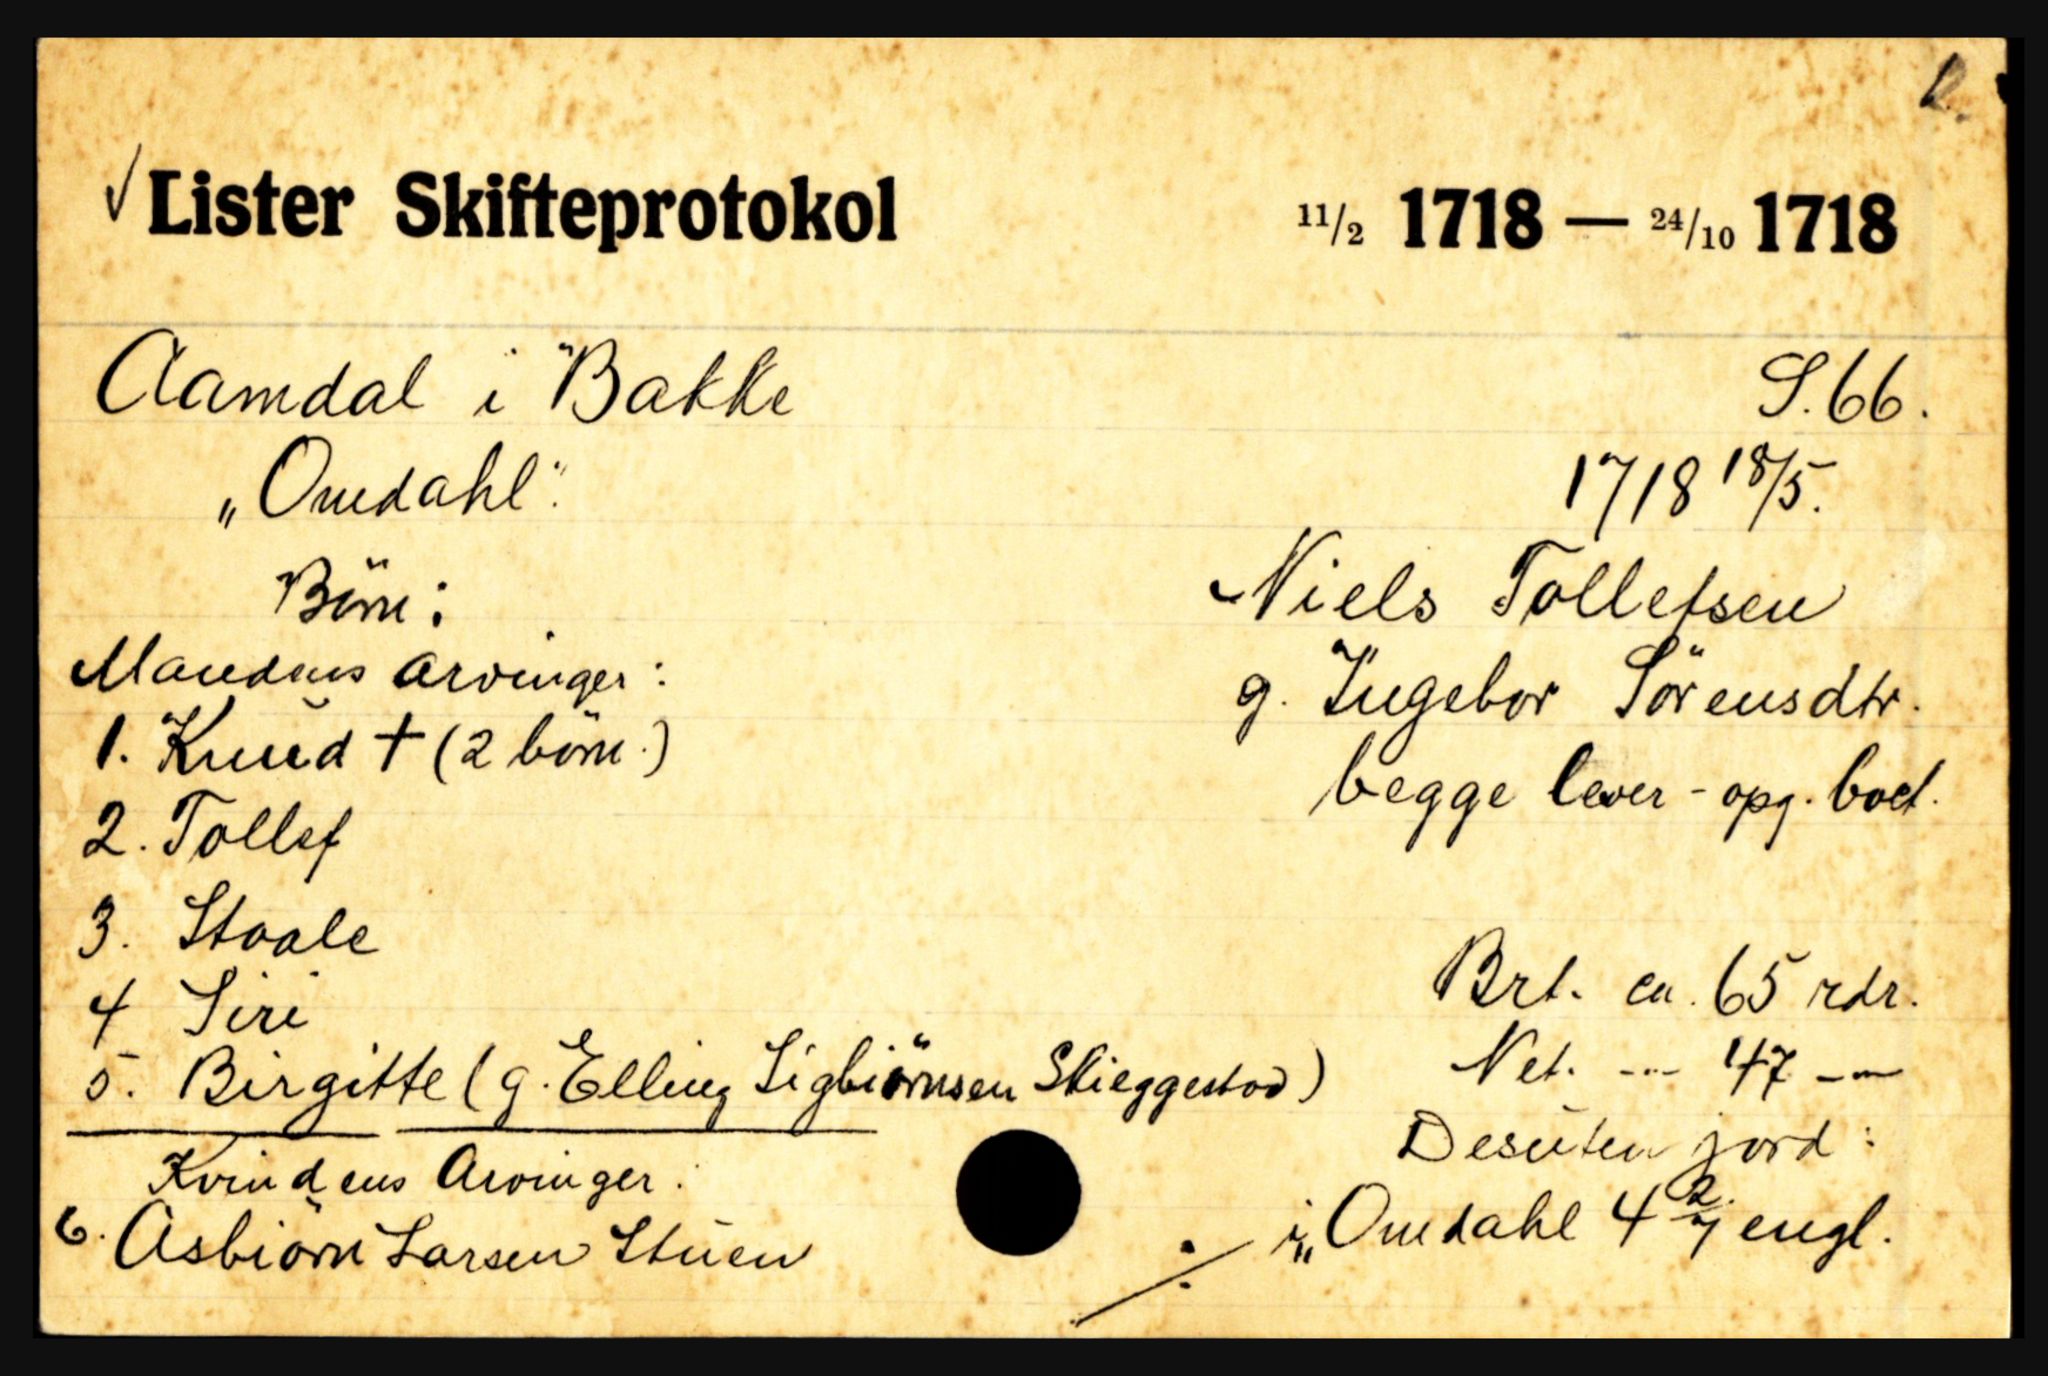 Lister Skifteprotokol 11/2 1718 — 24/10 1718
Aamdal i Bakke S. 66.
„Omdahl". 1718 18/5.
Börn: Niels Tollefsen
Mandens arvinger: g. Ingebor Sörensdtr.
1. Knud † (2 börn.) begge lever - opg. boet.
2. Tollef
3. Staale
4 Siri Brt. ca. 65 rdr.
5. Birgitte (g. Elling Sigbiörnsen Skieggestad) Net. -"- 47 -"-
Kvindens Arvinger: Desuten jord:
6. Asbiörn Larsen Stuen ./. i „Omdahl 4 2/7 engl.